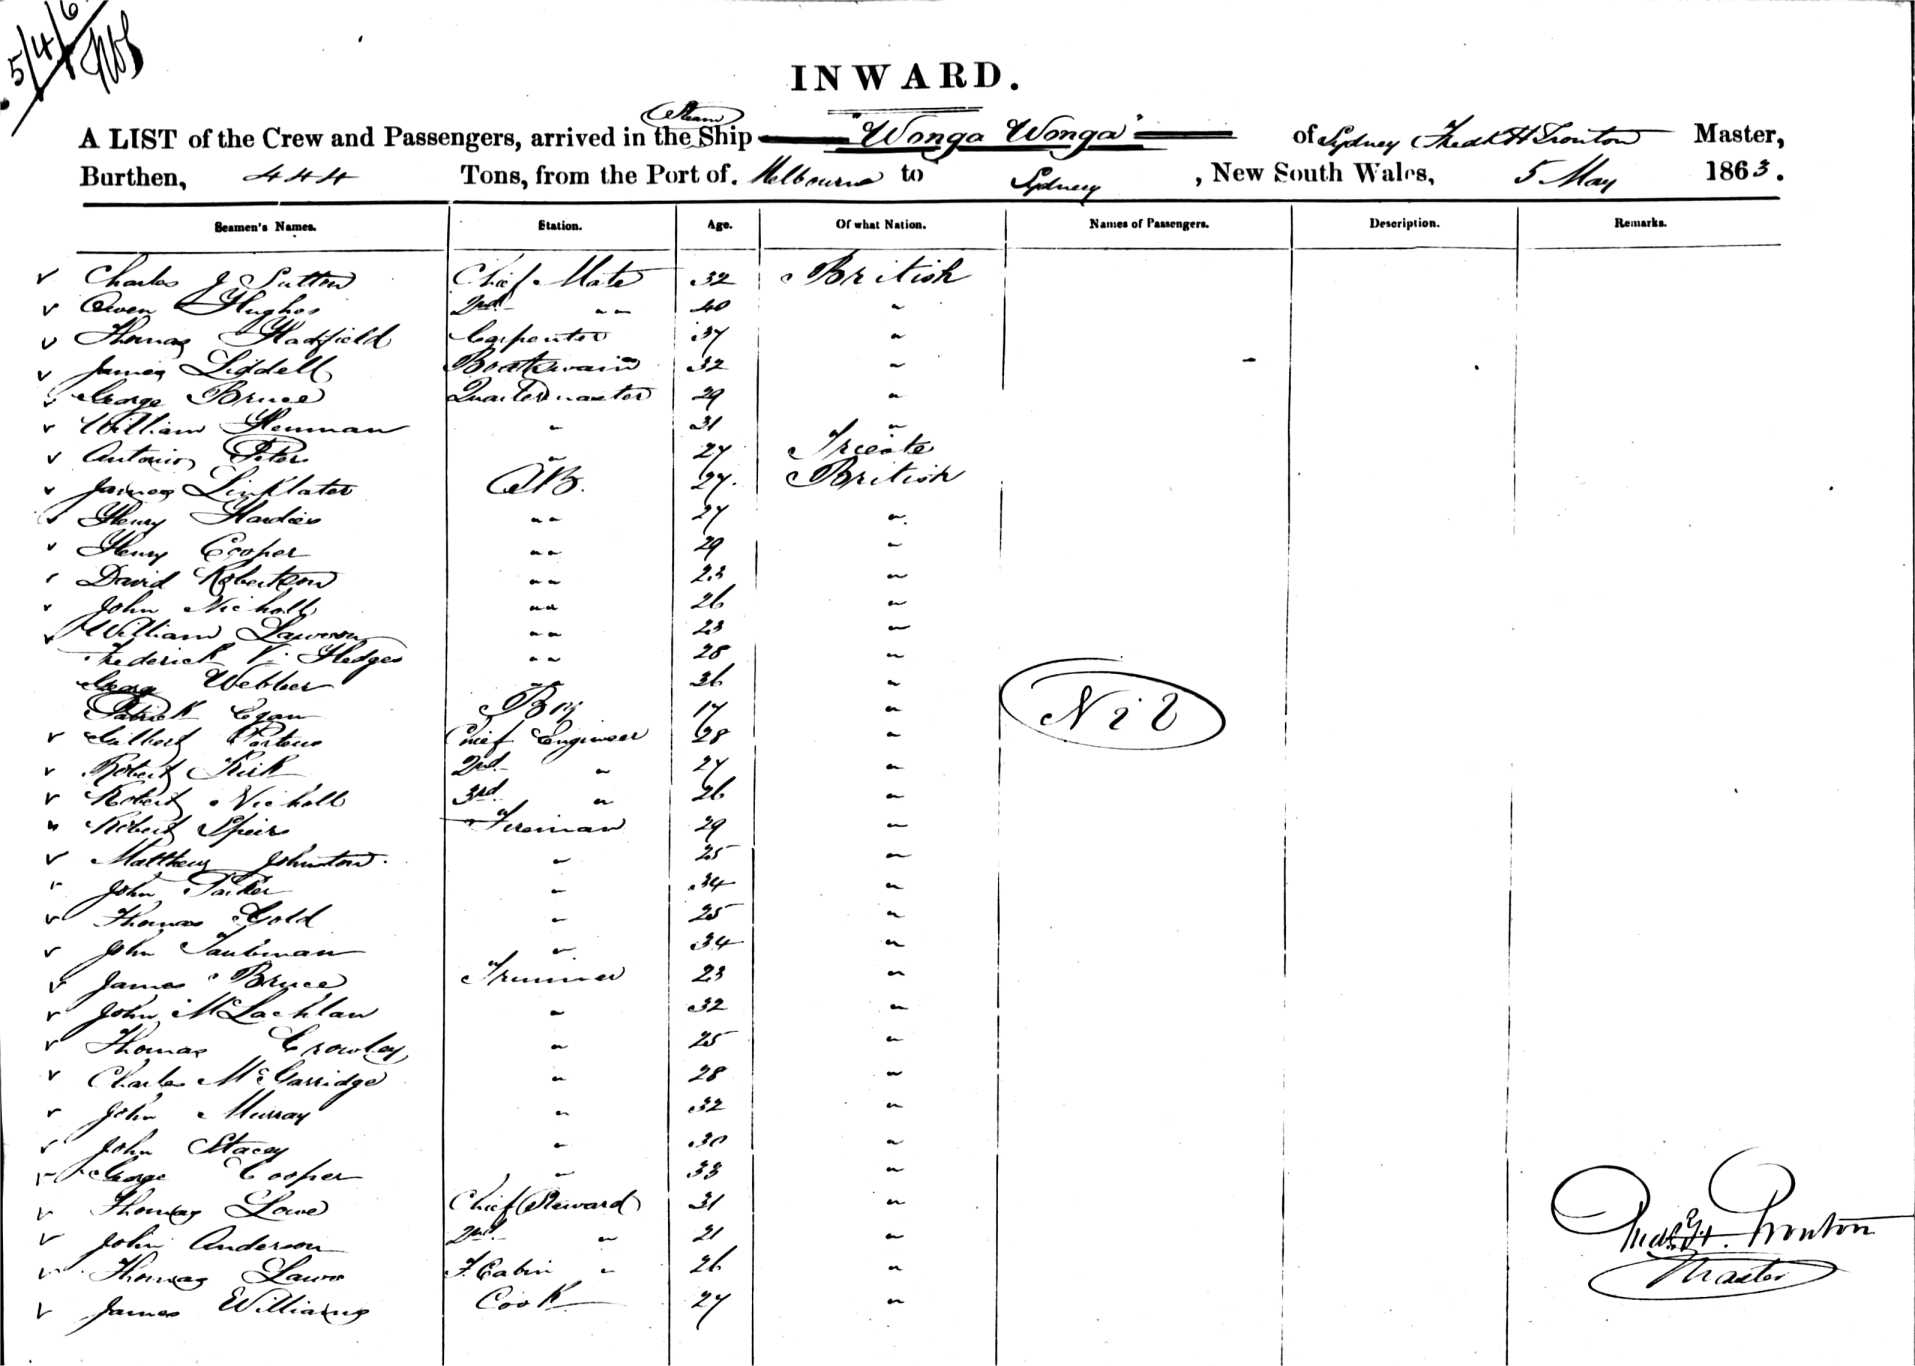 5/4/6
INWARD.
A LIST of the Crew and Passengers, arrived in the Steam Ship "Wonga Wonga" of Sydney Fredk H Trouton Master,
Burthen, 444 Tons, from the Port of Melbourne to Sydney, New South Wales, 5 May 1863.
Seamen's Names. Station. Age. Of what Nation. Names of Passengers. Description. Remarks.
v Charles J Sutton Chief Mate 32 British
v Owen Hughes 2nd " " 40 "
v Thomas Hadfield Carpenter 37 "
v James Liddell Boatswain 32 "
v George Bruce Quartermaster 29 "
v William Henman " 31 "
v Antonio Peter " 27 Trieste
v James Linklater AB. 27. British
v Henry " " 27 "
v Henry Cooper " " 29 "
v David Robertson " " 23 "
v John Nicholl " " 26 "
v William " " 23 "
Frederick V. Hedges " " 28 "
George Webber " " 36 "
Patrick Egan Boy 17 "
Nil
v Gilbert Porteus Chief Engineer 28 "
v Robert Kirk 2nd " 27 "
v Robert Nicholl 3rd " 26 "
v Robert Speirs Fireman 29 "
v Matthew Johnston. " 25 "
v John Parker " 34 "
v Thomas Gold " 25 "
v John Taubman " 34 "
v James Bruce Trimmer 23 "
v John McLachlan " 32 "
v Thomas Crowley " 25 "
v Charles McGarridge " 28 "
v John Murray " 32 "
v John Stacey " 30 "
v George Cooper " 33 "
v Thomas Lowe Chief Steward 31 "
v John Anderson 2nd " 21 "
Fredk H. Trouton
v Thomas F. Cabin " 26 "
Master
v James Williams Cook 27 "